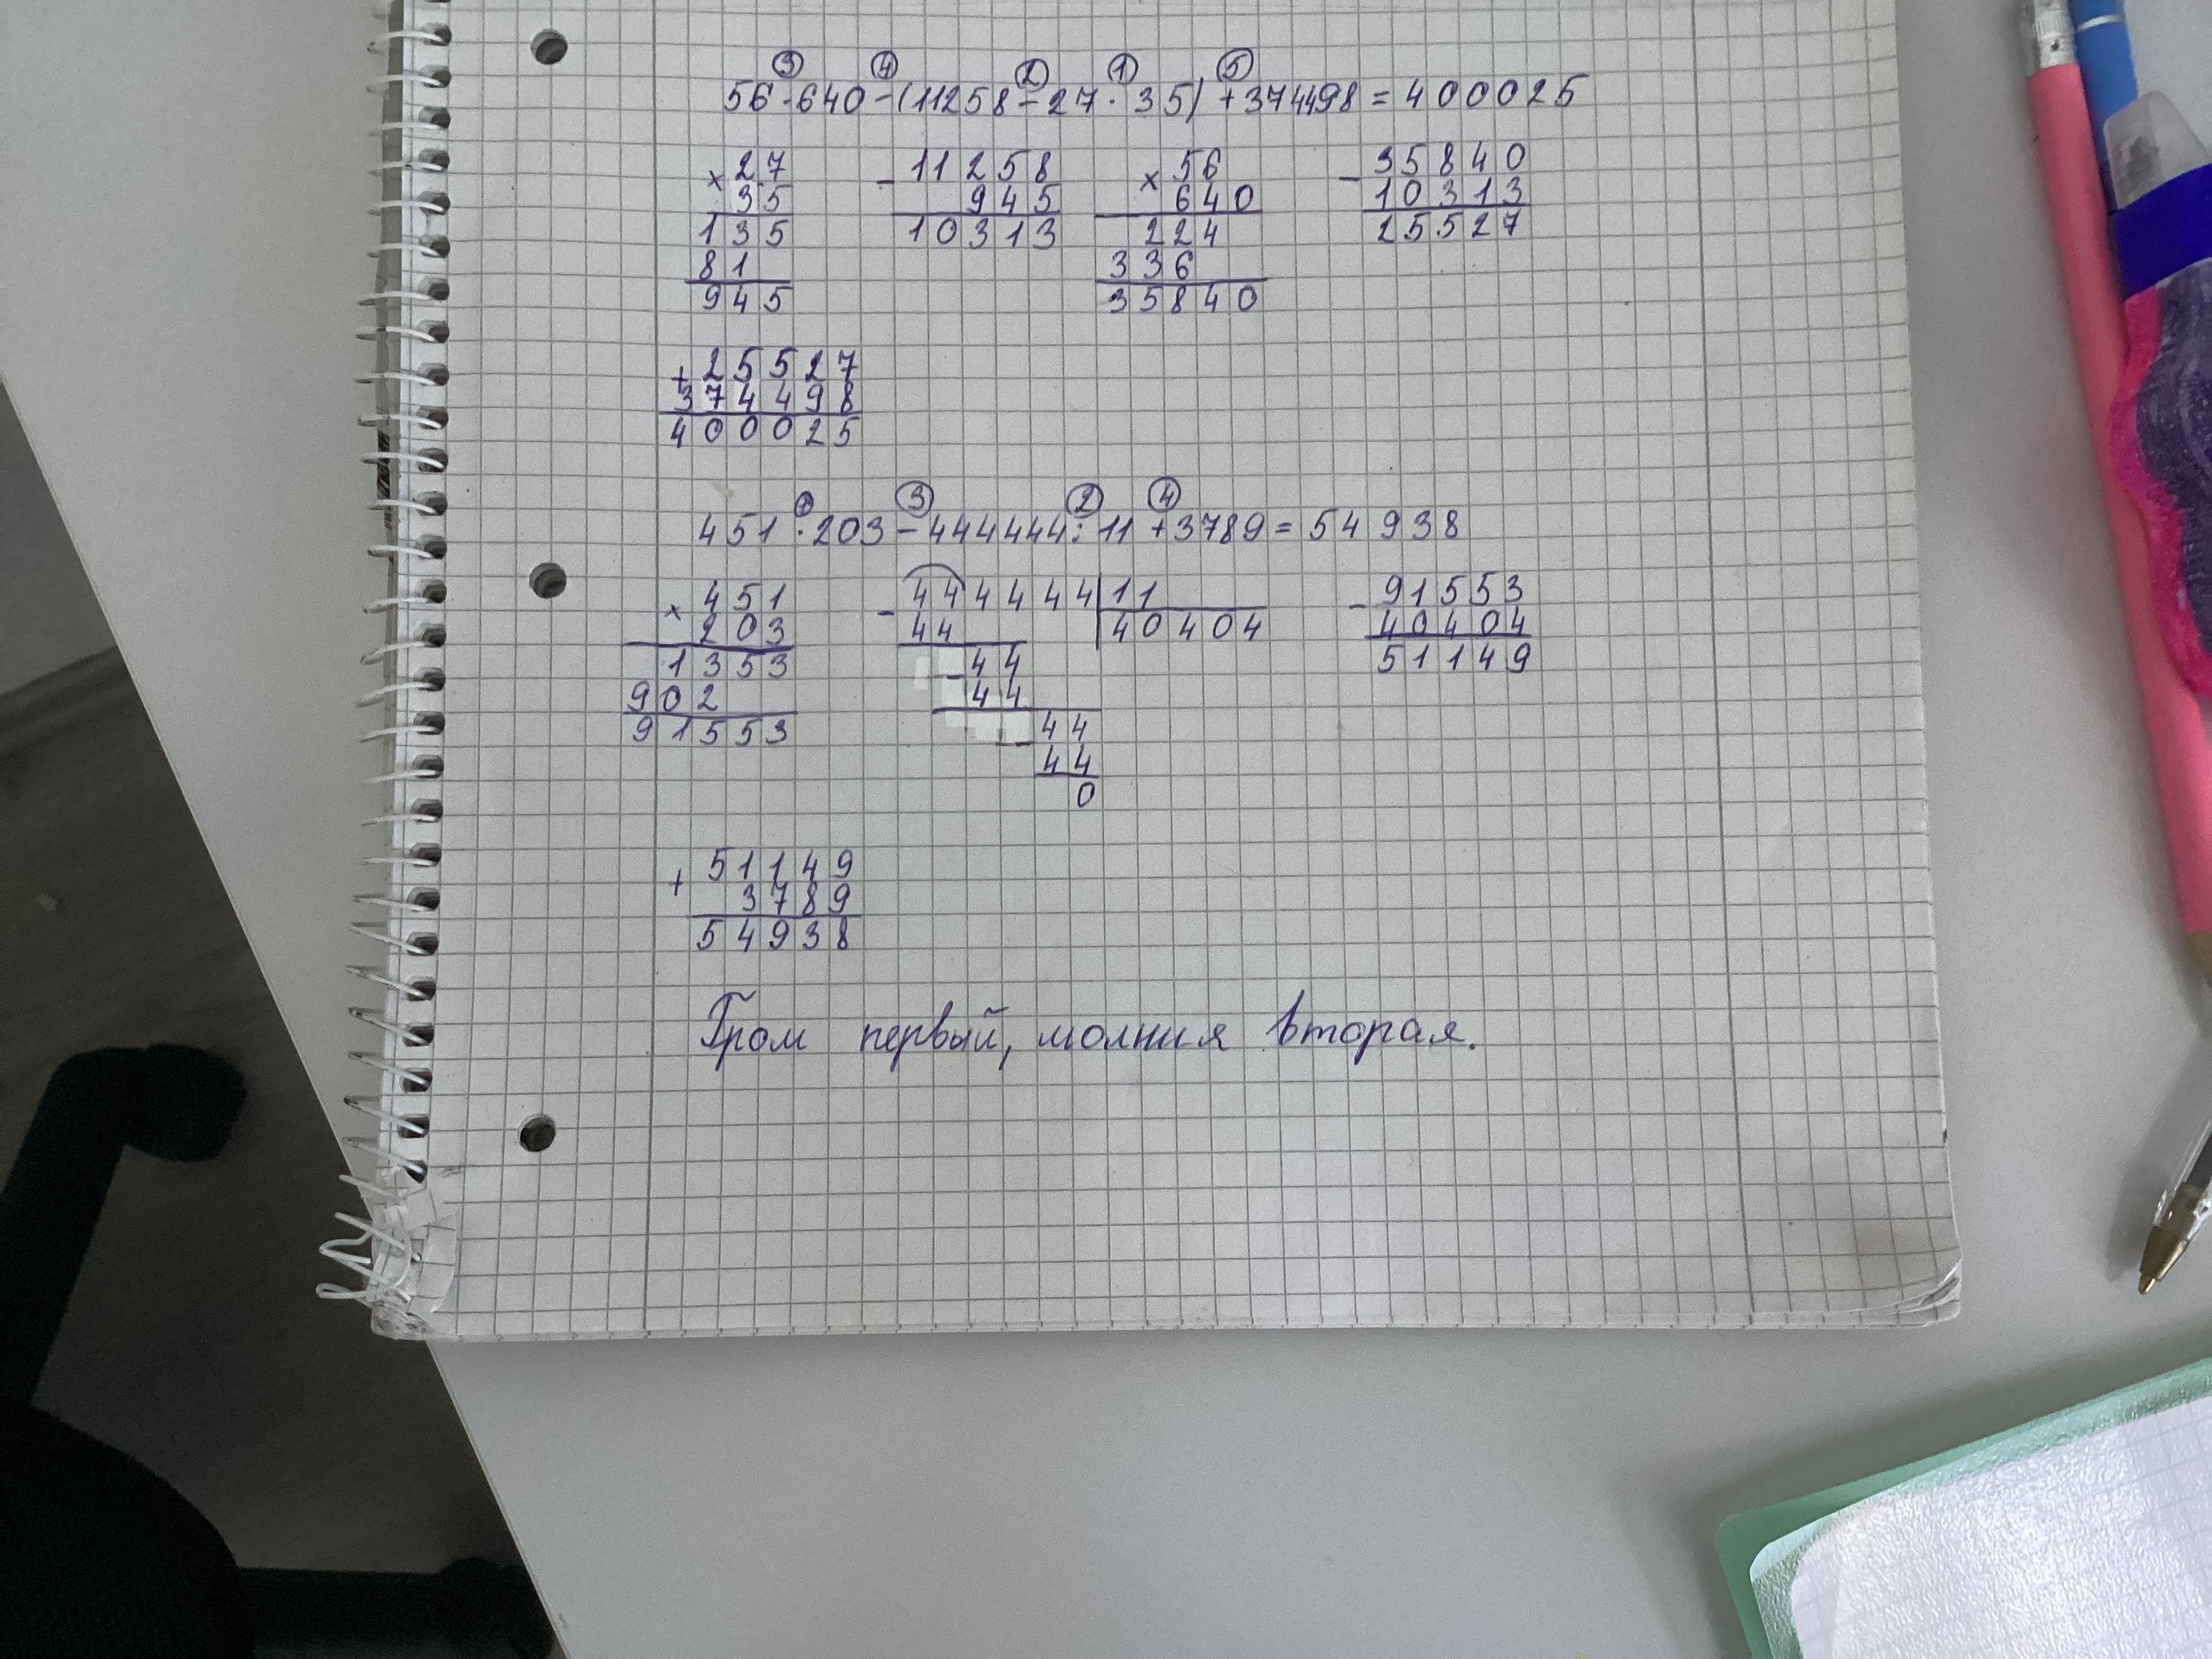 ③ ④ ② ① ⑤
56·640-(11258-27·35)+374498=400025
×27 -11258 ×56 -35840
35 945 640 10313
135 10313 224 25527
81 336
945 35840
+25527
374498
400025
① ③ ② ④
451·203-444444:11+3789=54938
×451 -444444|11 -91553
203 44 40404 40404
1353 -44 51149
902 44
91553 -44
44
0
+51149
3789
54938
Гром первый, молния вторая.